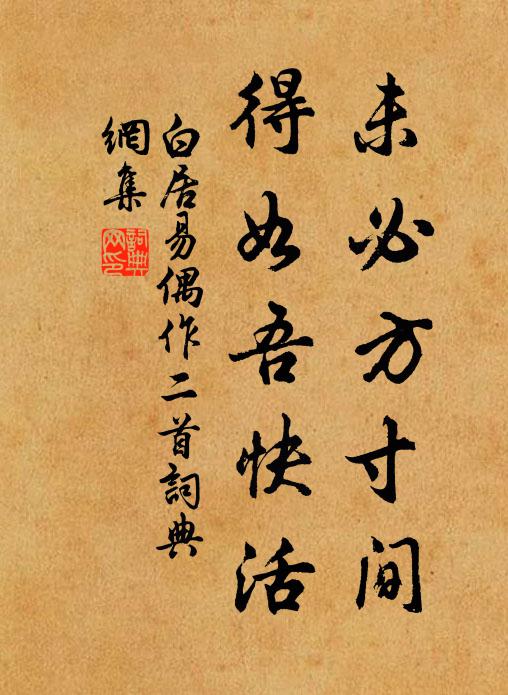 未必方寸間
得如吾快活
白居易偶作二首詞典
網集
詞典
网印